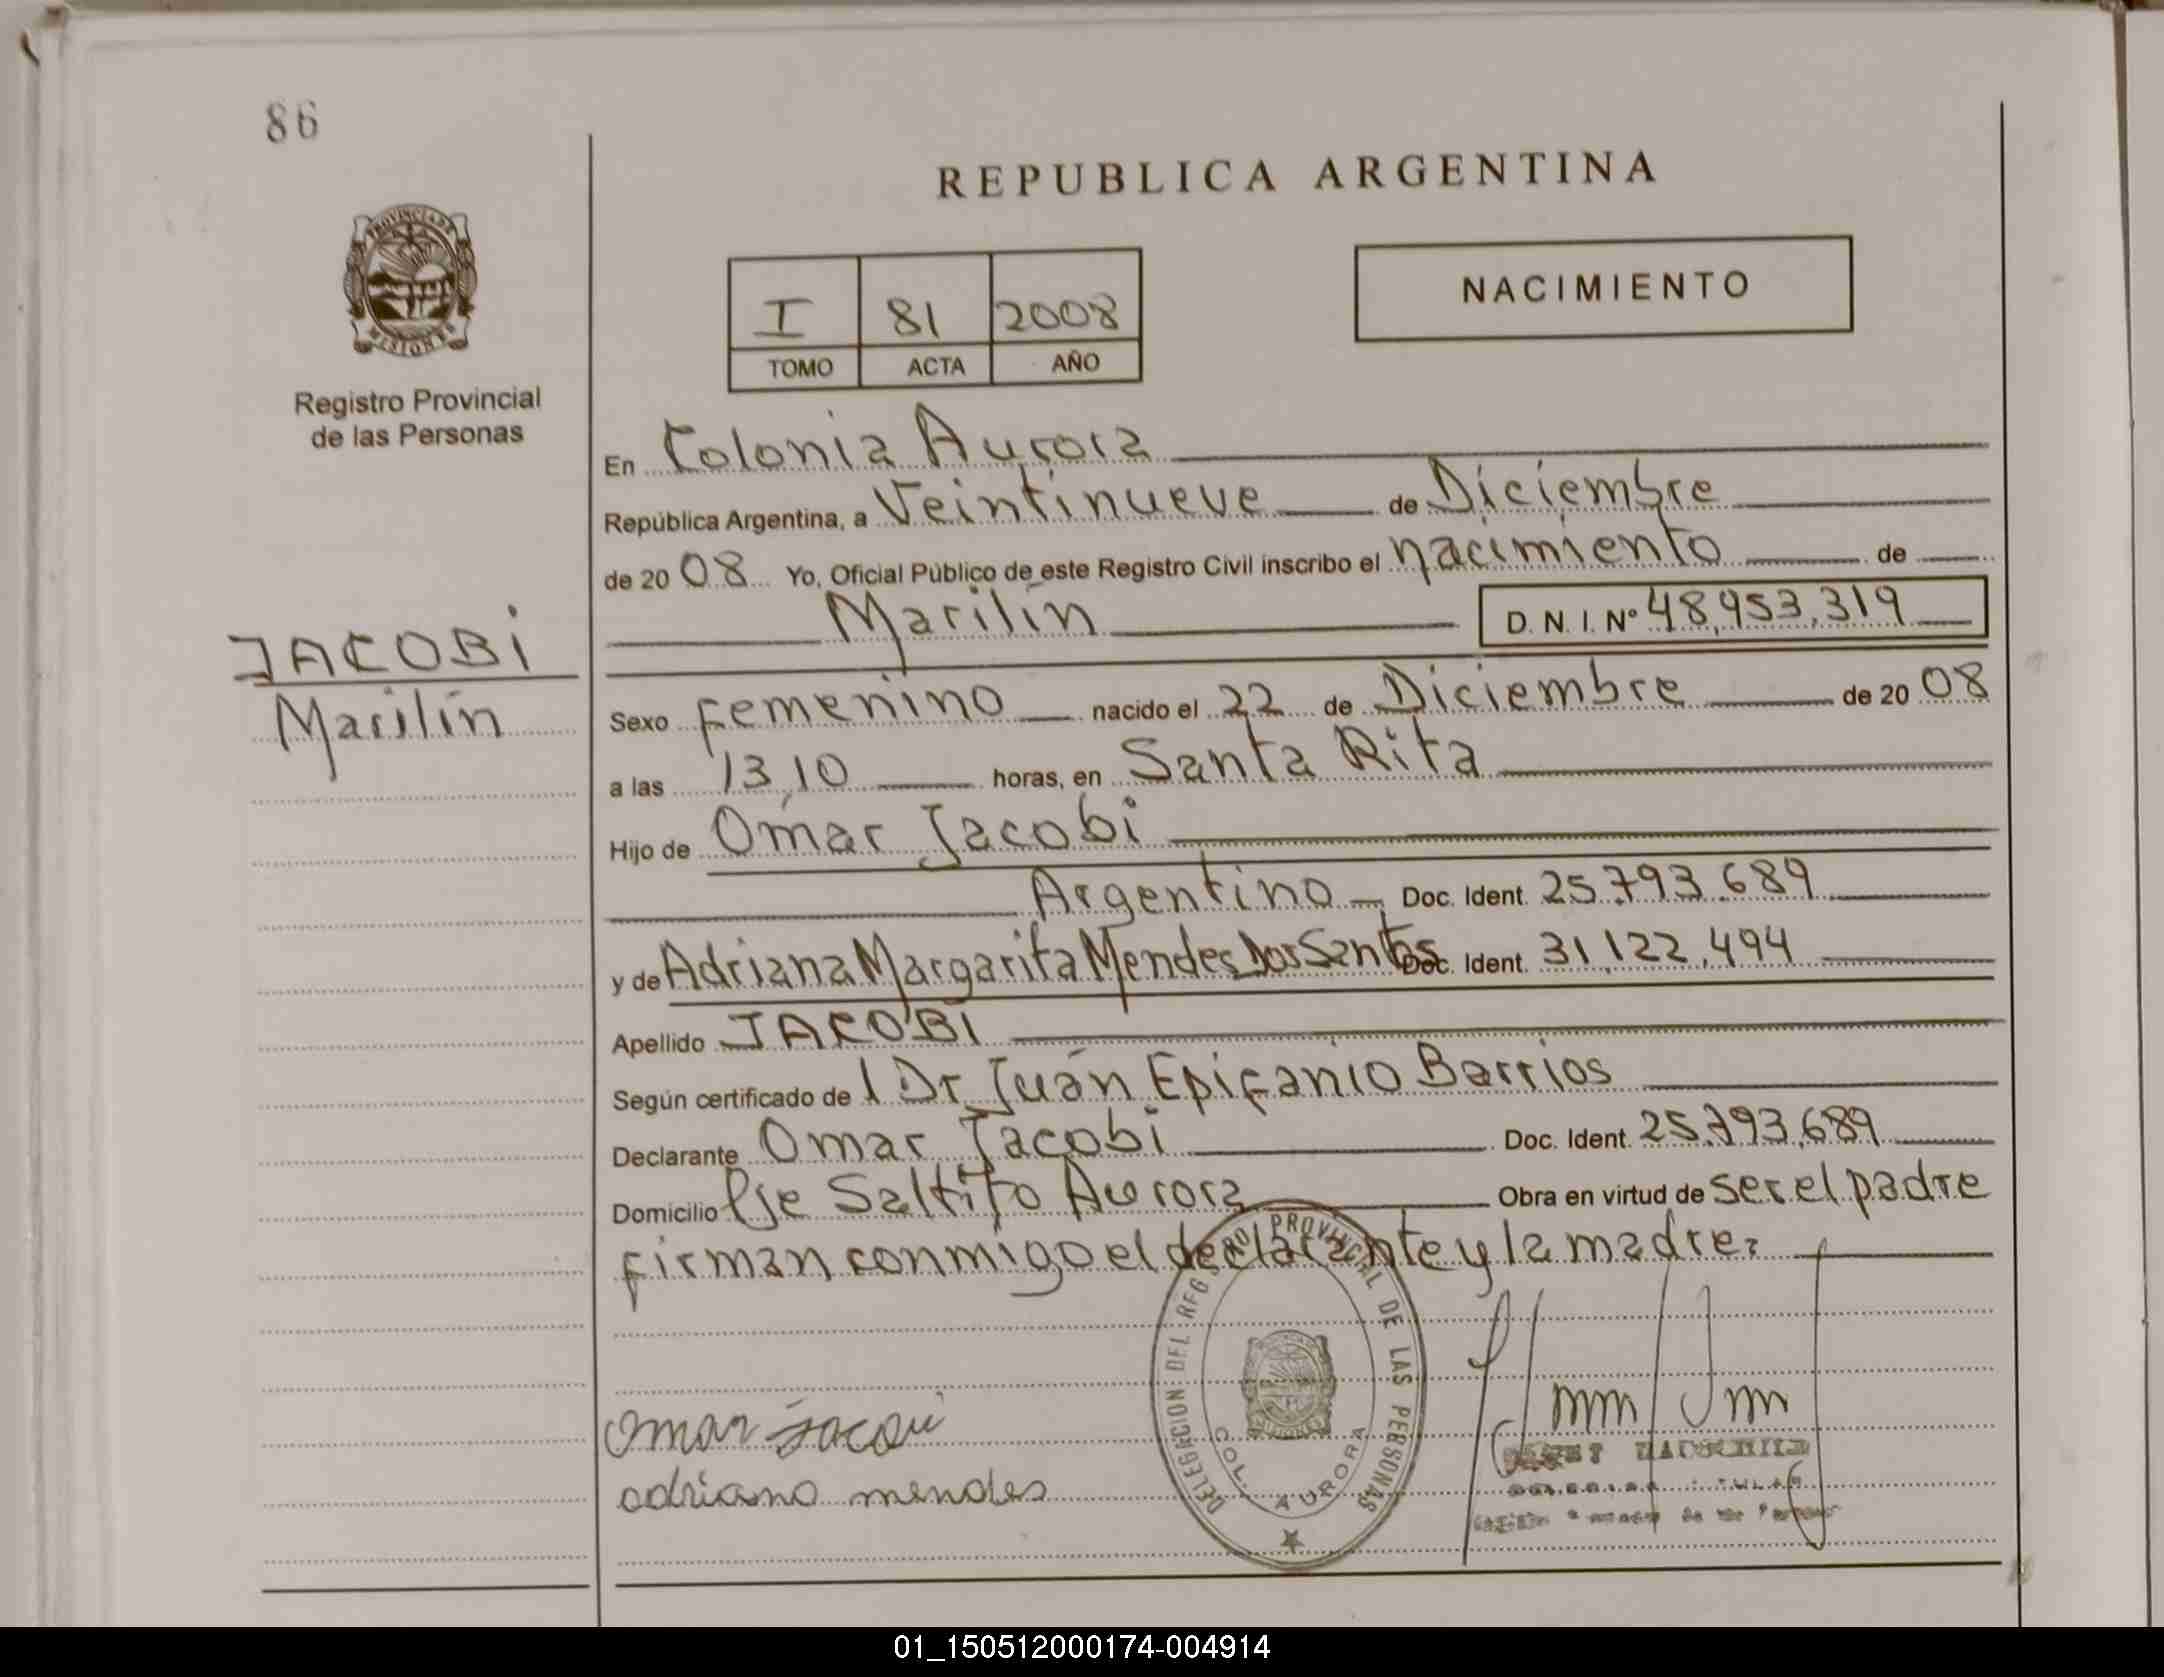 86
REPUBLICA ARGENTINA
PROVINCIA DE
MISIONES
Registro Provincial
de las Personas
I 81 2008
TOMO ACTA AÑO
NACIMIENTO
En Colonia Aurora
República Argentina, a Veintinueve de Diciembre
de 2008 Yo, Oficial Público de este Registro Civil inscribo el nacimiento de
Marilín D.N.I. Nº 48,953,319
JACOBi
Marilín
Sexo Femenino nacido el 22 de Diciembre de 2008
a las 13,10 horas, en Santa Rita
Hijo de Omar Jacobi
Argentino Doc. Ident. 25.793.689
y de Adriana Margarita Mendes Dos Santos Doc. Ident. 31,122,494
Apellido JACOBI
Según certificado de l Dr Juán Epifanio Barrios
Declarante Omar Jacobi Doc. Ident. 25.793,689
Domicilio Pje Saltito Aurora Obra en virtud de ser el padre
firman conmigo el declarante y la madre.
DELEGACION DEL REG PROVINCIAL DE LAS PERSONAS
COL. AURORA
Omar Jacobi
adriano mendes
01_150512000174-004914